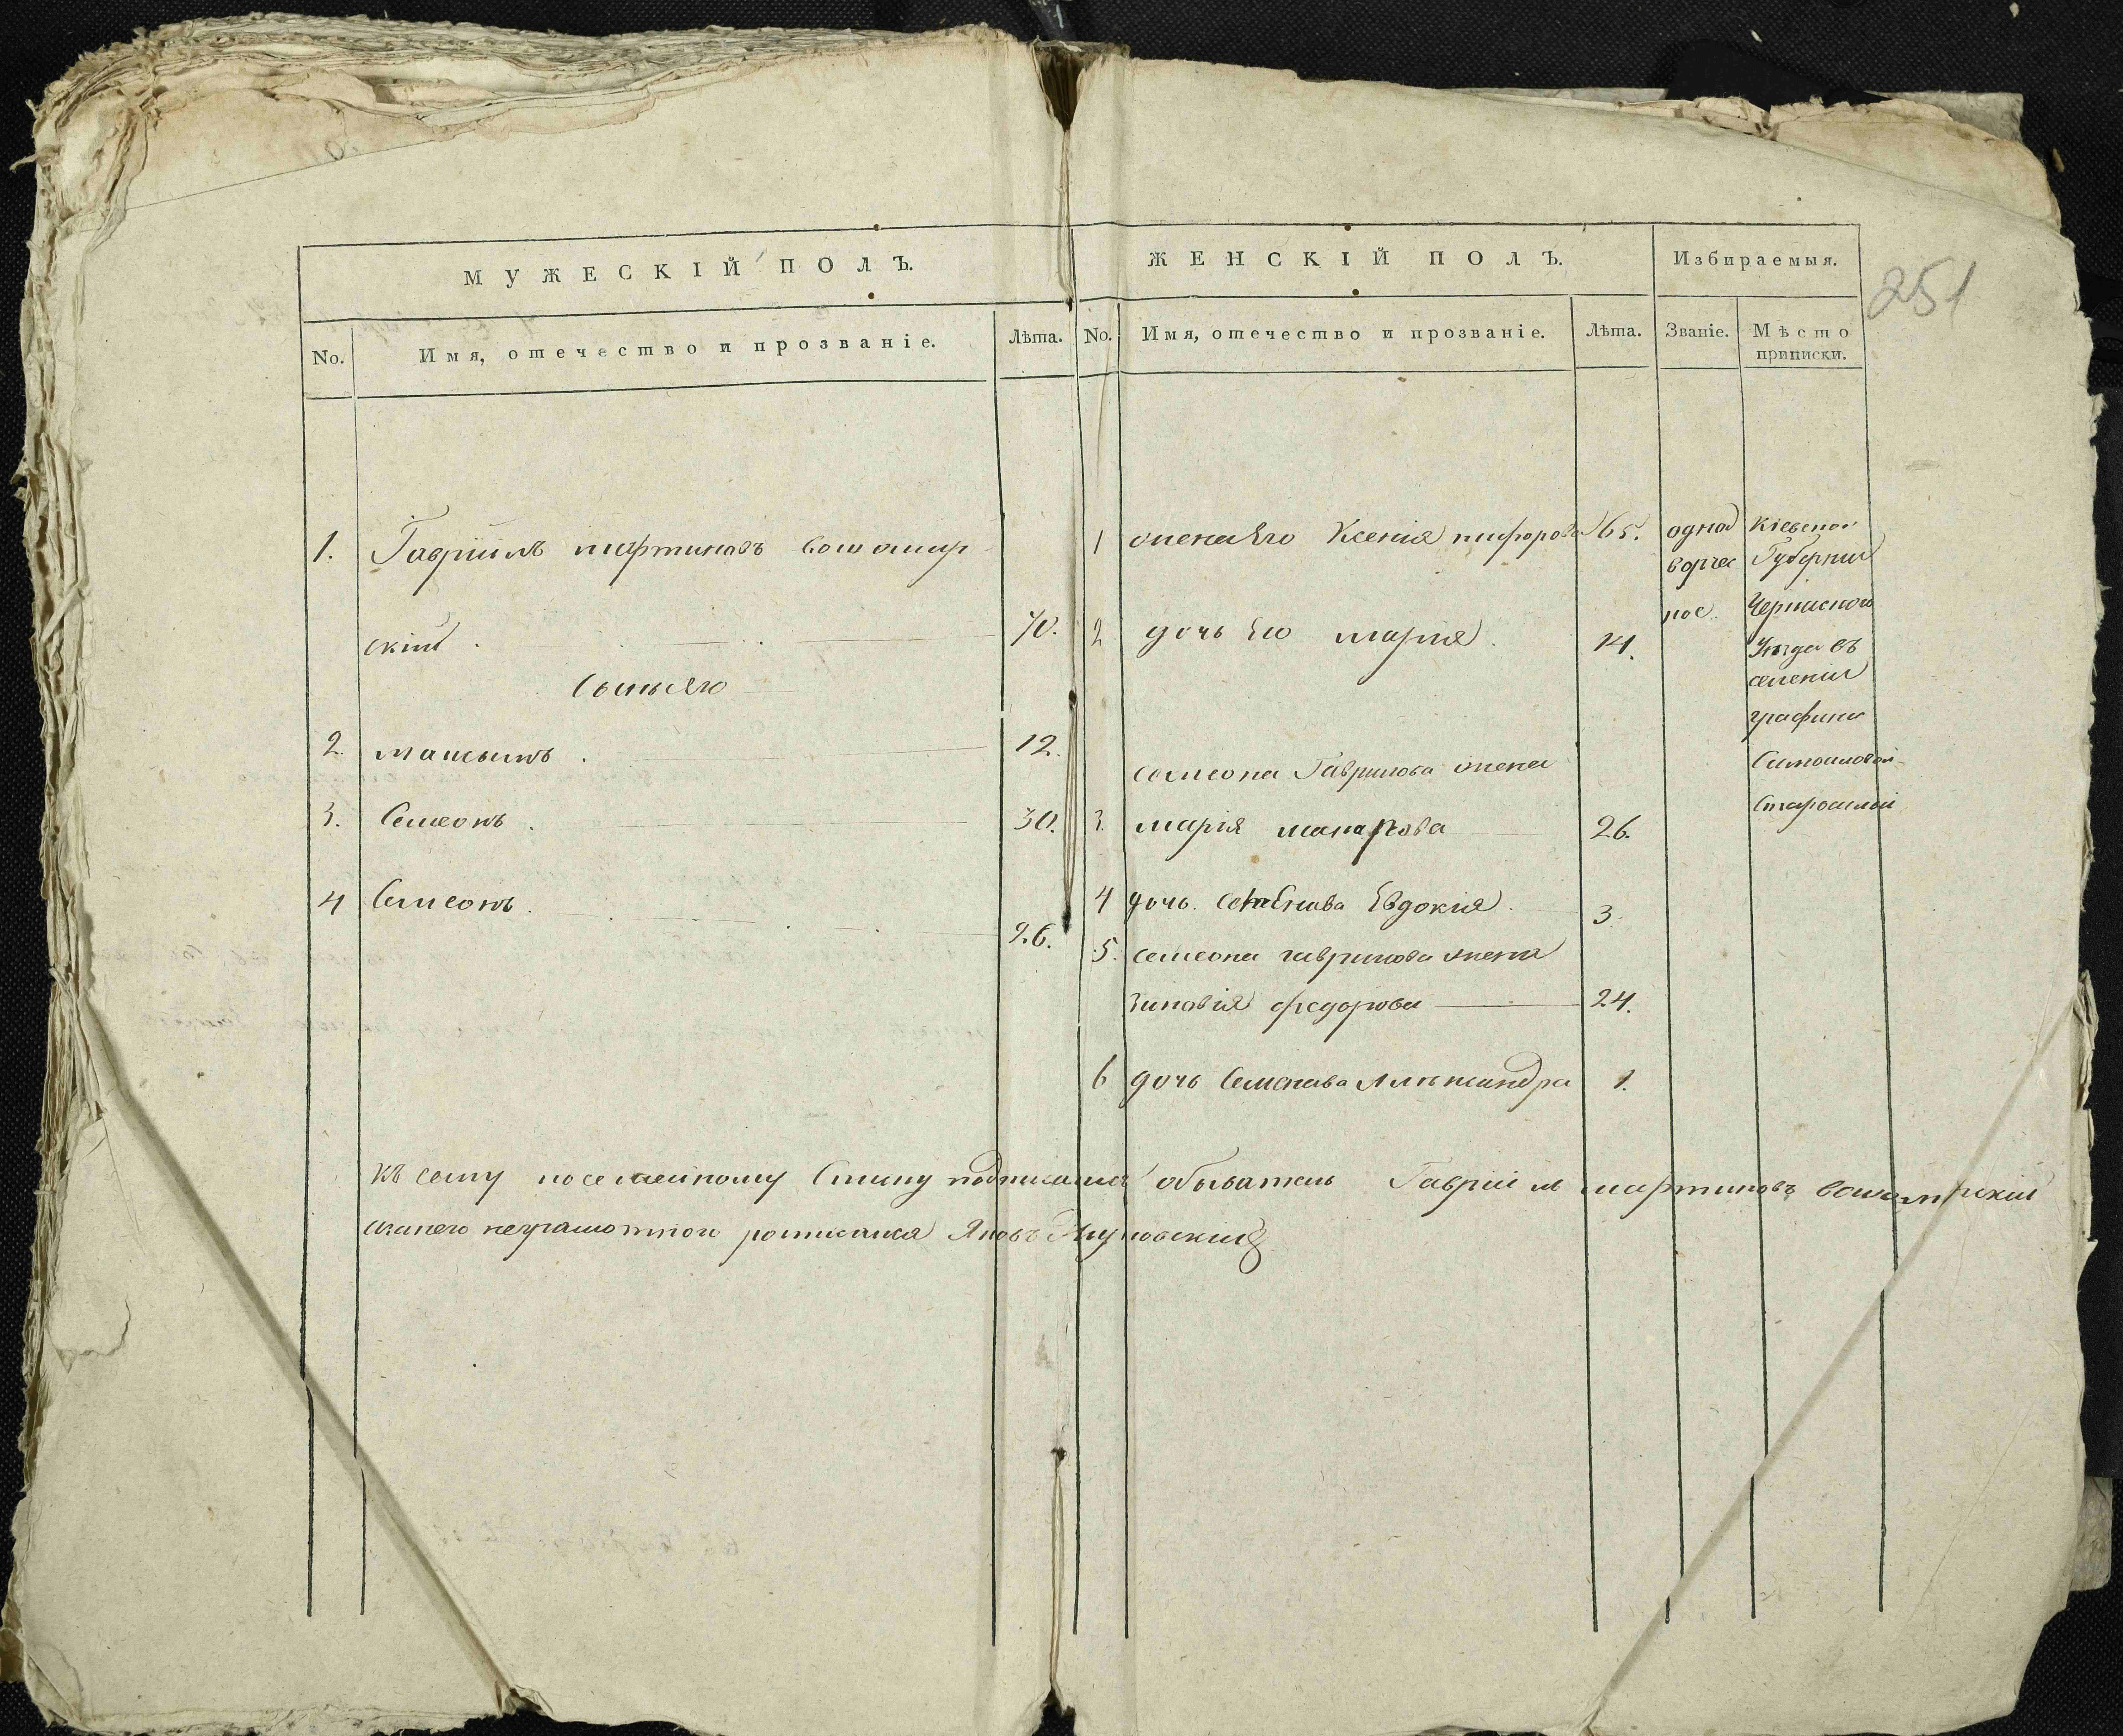 МУЖЕСКІЙ ПОЛЪ.
No.
Имя, отечество и прозваніе.
Лѣта.
1. Гавріилъ мартиновъ
скій 70.
Сынъ его
2. 12.
3. Семеонъ 30.
4 Семеонъ 26.
ЖЕНСКІЙ ПОЛЪ.
Избираемыя.
251
No.
Имя, отечество и прозваніе.
Лѣта.
Званіе.
Мѣсто
приписки.
1 жена Его Ксенія 65.
2 дочь Его марія 14.
семеона Гаврилова жена
3. марія макарова 26.
4 дочь Семенова Евдокія 3.
5. семеона гаврилова жена
зиновія федорова 24.
6 дочь Семенова Александра 1.
однод
ворчес
кое
Кіевской
Губерніи
Черкаского
Уезда въ
селеніи
графини
Самойловой
къ сему посемейному Списку подписался обыватель Гавріилъ мартиновъ
азанего неграмотного росписался Яковъ